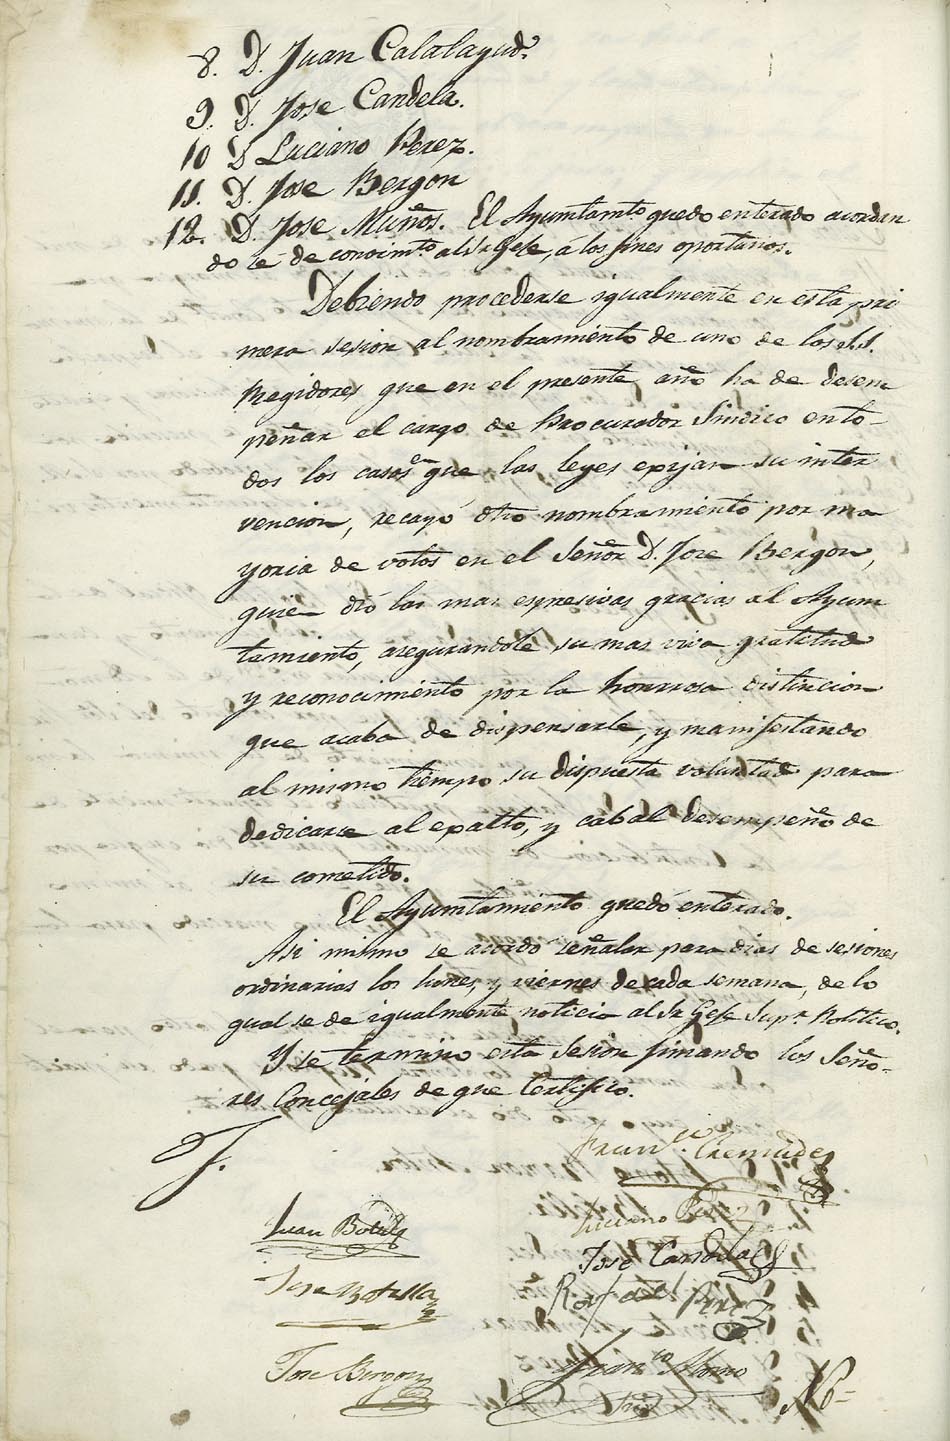 8. D. Juan Calatayud.
9. D. Jose Candela.
10 D Luciano Perez.
11. D. Jose Bergon
12. D. Jose Muños. El Ayuntamto quedo enterado acordan
do se dé conocimto al Sr Gefe, á los fines oportunos.
Debiendo procederse igualmente en esta pri
mera sesion al nombramiento de uno de los S.S.
Regidores que en el presente año ha de desem
peñar el cargo de Procurador Sindico en to-
dos los casos en que las leyes exijan su inter
vencion, recayó dho nombramiento por ma
yoria de votos en el Señor D. Jose Bergon,
quien dió las mas expresivas gracias al Ayun
tamiento, asegurandole su mas viva gratitud
y reconocimiento por la honrrosa distincion
que acaba de dispensarle, y manifestando
al mismo tiempo su dispuesta voluntad para
dedicarse al exalto, y cabal desempeño de
su cometido.
El Ayuntamiento quedó enterado.
Asi mismo se acordó señalar para dias de sesiones
ordinarias los lunes, y viernes de cada semana, de lo
qual se de igualmente noticia al Sr Gefe Supr Politico.
Y se termino esta sesion firmando los Seño-
res Concejales de que certifico.
F.
Franco Cremades
Juan Botella
Luciano Perez
Jose Candela
Jose Botella
Rafael Perez
Jose Bergon
Franco Alonso
Srio